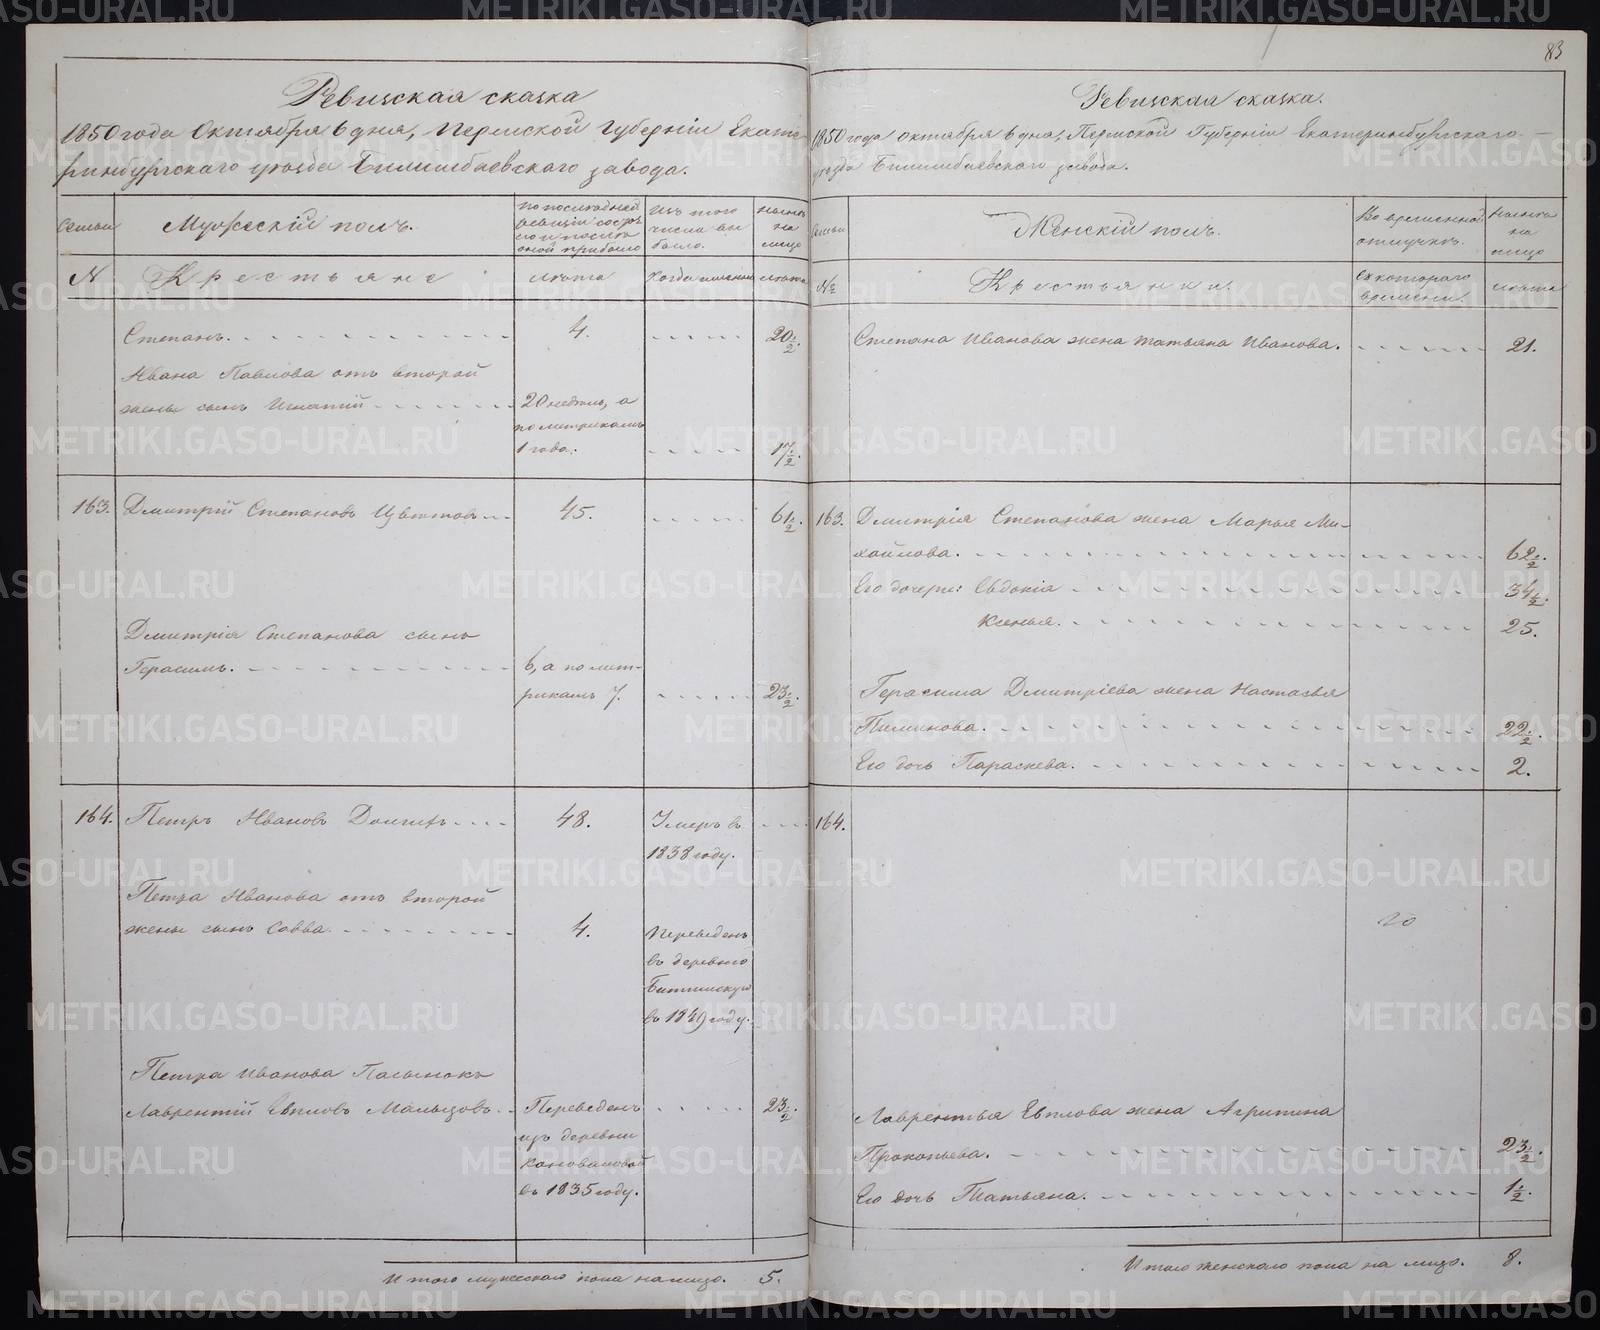 83
Ревизская сказка
1850 года Октября 6 дня, Пермской Губерніи Екате-
ринбургскаго уезда Билимбаевскаго завода.
Семьи
Мужескій полъ.
По последней ревизіи состояло и после оной прибыло
Изъ того числа выбыло.
Ныне на лицо
№
Крестьяне
лета
Когда именно
лета
Степанъ. 4. 20 ½.
Ивана Павлова отъ второй
жены сынъ Игнатій 20 недель, а
по метрикамъ
1 года. 17 ½.
163. Дмитрій Степановъ Цветовъ 45. 61 ½
Дмитрія Степанова сынъ
Герасимъ. 6, а по мет-
рикамъ 7. 23 ½.
164. Петръ Ивановъ 48. Умеръ въ
1838 году.
Петра Иванова отъ второй
жены сынъ Савва. 4. Переведенъ
въ деревню
Битимскую
въ 1849 году.
Петра Иванова Пасынокъ
Лаврентій Евпловъ Мальцовъ. Переведенъ 23 ½.
изъ деревни
Коноваловой
въ 1835 году.
Итого мужескаго пола на лицо. 5.
Ревизская сказка.
1850 года октября 6 дня, Пермской Губерніи Екатеринбургскаго
уезда Билимбаевскаго завода.
Семьи
Женскій полъ.
Во временной отлучке.
Ныне на лицо
№
Крестьянки.
Съ котораго времени.
лета
Степана Иванова жена Татьяна Иванова. 21.
163. Дмитрія Степанова жена Марья Ми-
хайлова. 62 ½.
Его дочери: Евдокія 34 ½.
Ксенья. 25.
Герасима Дмитріева жена Настасья
Пиминова. 22 ½.
Его дочь Параскева. 2.
164.
20
Лаврентья Евплова жена Агрипина
Прокопьева. 23 ½.
Его дочь Татьяна. 1 ½.
Итого женскаго пола на лицо. 8.
METRIKI.GASO-URAL.RU